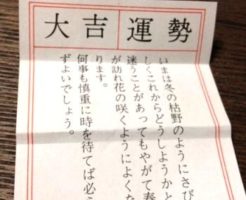 大吉
運勢
いまは冬の枯野のようにさび
しくこれからどうしようかと
迷うことがあってもやがて春
が訪れ花の咲くようによくな
ります。
何事も慎重に時を待てば必
ずよいでしょう。